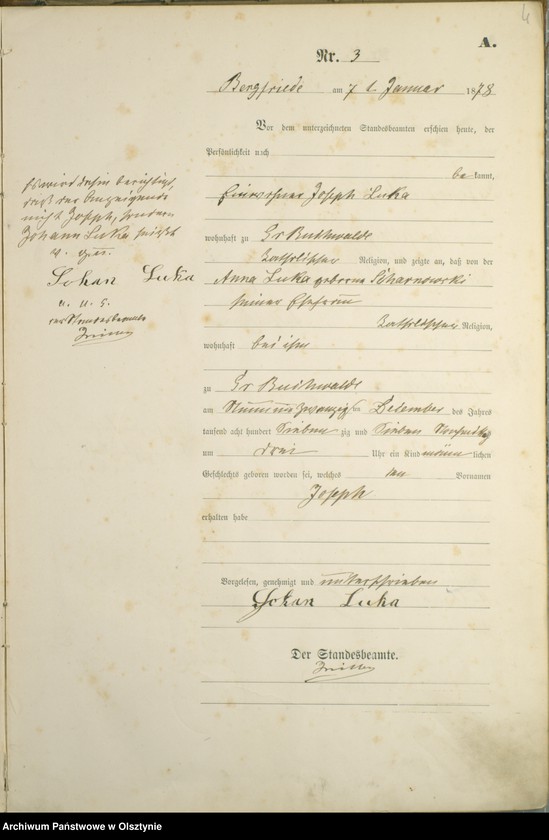 4
A.
Nr. 3
Bergfriede am 7 t. Januar 1878
Vor dem unterzeichneten Standesbeamten erschien heute, der
Persönlichkeit nach
be kannt,
Einwohner Joseph Luka
wohnhaft zu Gr Buchwalde
katholischer Religion, und zeigte an, daß von der
Anna Luka geborene Scharnowski
seiner Ehefrau
katholischer Religion,
wohnhaft bei ihm
zu Gr Buchwalde
am neunundzwanzig ten Dezember des Jahres
tausend acht hundert sieben zig und sieben Nachmittag
um drei Uhr ein Kind männ lichen
Geschlechts geboren worden sei, welches den Vornamen
Joseph
erhalten habe
Vorgelesen, genehmigt und unterschrieben
Johan Luka
Der Standesbeamte.
Es wird dahin berichtigt,
daß der Anzeigende
nicht Joseph, sondern
Johann Luka heißt
Johan Luka
der Standesbeamte
Archiwum Państwowe w Olsztynie